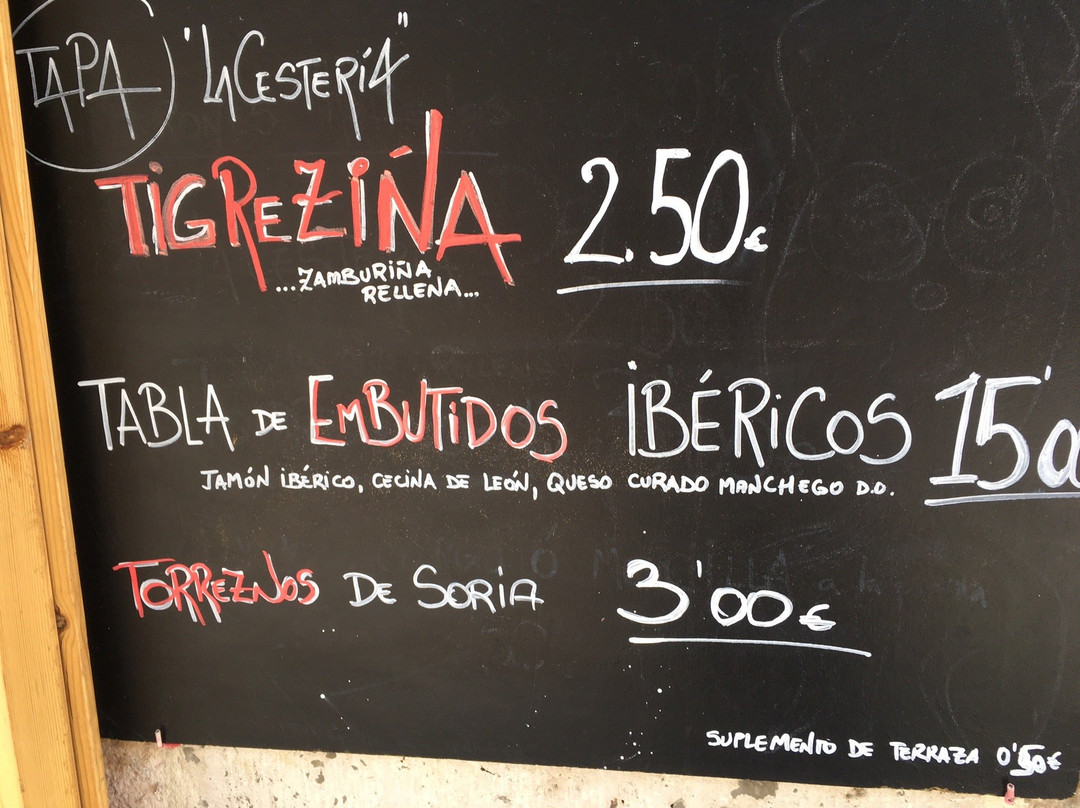 TAPA "LA CESTERÍA"
TIGREZIÑA 2.50€
...ZAMBURIÑA
RELLENA...
TABLA DE EMBUTIDOS IBÉRICOS 15'0
JAMÓN IBÉRICO, CECINA DE LEÓN, QUESO CURADO MANCHEGO D.O.
TORREZNOS DE SORIA 3'00€
SUPLEMENTO DE TERRAZA 0'50€